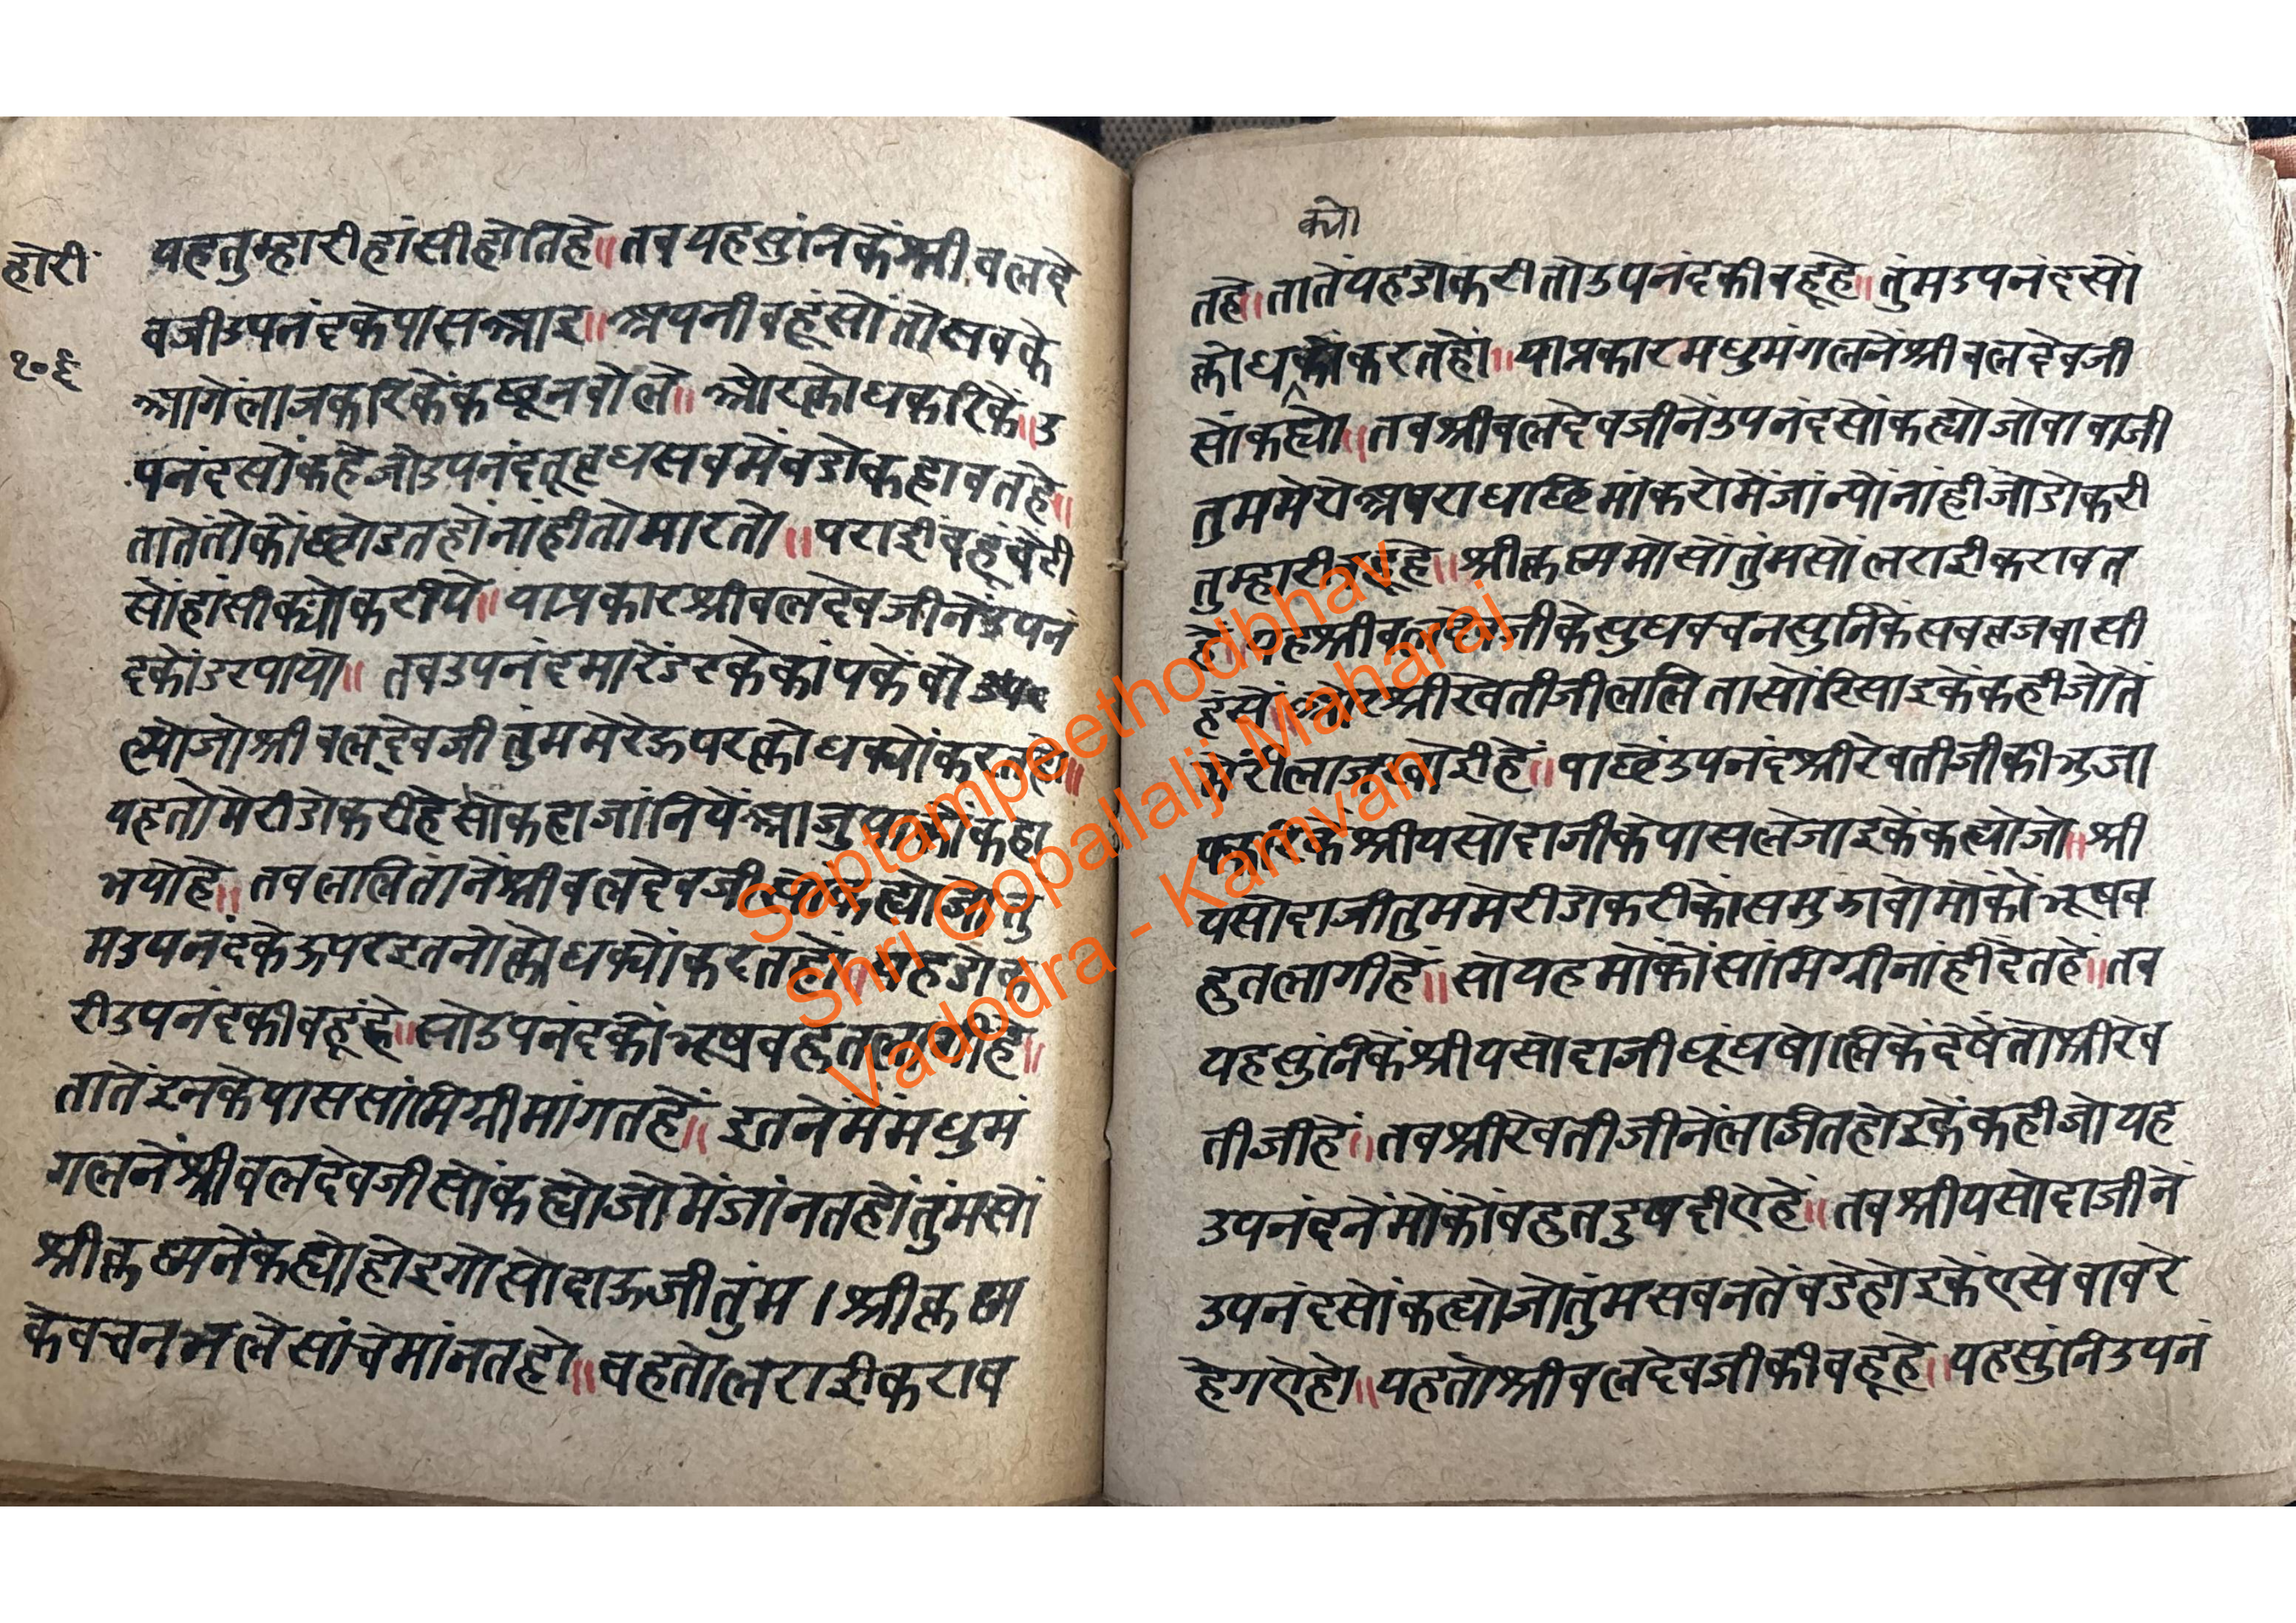 होरी
१०६
यहतुम्हारीहांसीहोतिहे॥तबयहसुंनिकेंश्रीबलदे
वजीउपनंदकेपासआइ॥अपनीबहूंसोंतोसबके
आगेंलाजकरिकेंकछूनबोले॥ओरक्रोधकरिकें॥उ
पनंदसोंकहेजोउपनंदतूबृधसबमेंबडोकहावतहे॥
तातेंतोकोंछोडतहोंनांहीतोमारतो॥पराईबहूंबेटी
सोंहांसीक्योकरीये॥याप्रकारश्रीबलदेवजीनेंउपनं
दकोंडरपायो॥तबउपनंदमारेंडरकेकांपकेंबो
ल्योजोश्रीबलदेवजीतुंममरेऊपरक्रोधक्योंकरतहो॥
यहतोमेरीडोकरीहेसोकहाजांनियेंआजुयाकोंकहा
भयोहे॥तबललितानेंश्रीबलदेवजीसोंकह्योजोतु
मउपनंदकेऊपरइतनोक्रोधक्योंकरतहों॥यहडोक
रीउपनंदकीबहूंहे॥सोउपनंदकोंभूषबहुतलागीहे॥
तातेंइनकेपाससांमिग्रीमांगतहें॥इतनेंमेंमधुमं
गलनेंश्रीबलदेवजीसोंकह्योजोमेंजांनतहोंतुंमसों
श्रीकृष्मनेंकह्योहोइगोसोदाऊजीतुंम।श्रीकृष्म
केबचनभलेसांचेमांनतहो॥वहतोलराईकराव
क्यो
तहे॥तातेंयहडोकरीतोउपनंदकीबहूहे॥तुंमउपनंदसों
क्रोधकोंकरतहों॥याप्रकारमधुमंगलनेंश्रीबलदेवजी
सोंकह्यो॥तबश्रीबलदेवजीनेंउपनंदसोंकह्योजोबाबाजी
तुममेरोअपराधछिमांकरोमेंजांन्योंनांहीजोडोकरी
तुम्हारीबहूहे॥श्रीकृष्ममोसोंतुंमसोंलराईकरावत
हे॥यहश्रीबलदेवजीकेसुधबचनसुनिकेंसबब्रजबासी
हंसे॥ओरश्रीरेवतीजीललितासोंरिसाइकेंकहीजोतें
मेरीलाजखोईहे॥पाछेंउपनंदश्रीरेवतीजीकीभुजा
पकरिकेंश्रीयसोदाजीकेपासलेजाइकेंकह्योजो॥श्री
यसोदाजीतुममेरीडोकरीकोंसमुझावोमोकोंभूषब
हुतलागीहें॥सोयहमोकोंसांमिग्रीनांहीदेतहें॥तब
यहसुंनिकेंश्रीयसोदाजीघूंघषोलिकेंदेषेंतोश्रीरेव
तीजीहें॥तबश्रीरेवतीजीनेंलाजितहोइकेंकहीजोयह
उपनंदनेंमोकोंबहुतदुषदीऐहे॥तबश्रीयसोदाजीनें
उपनंदसोंकह्योजोतुंमसबनतेंबडेहोइकेंएसेबावरे
हेगऐहो॥यहतोश्रीबलदेवजीकीबहूहे॥यहसुंनिउपनं